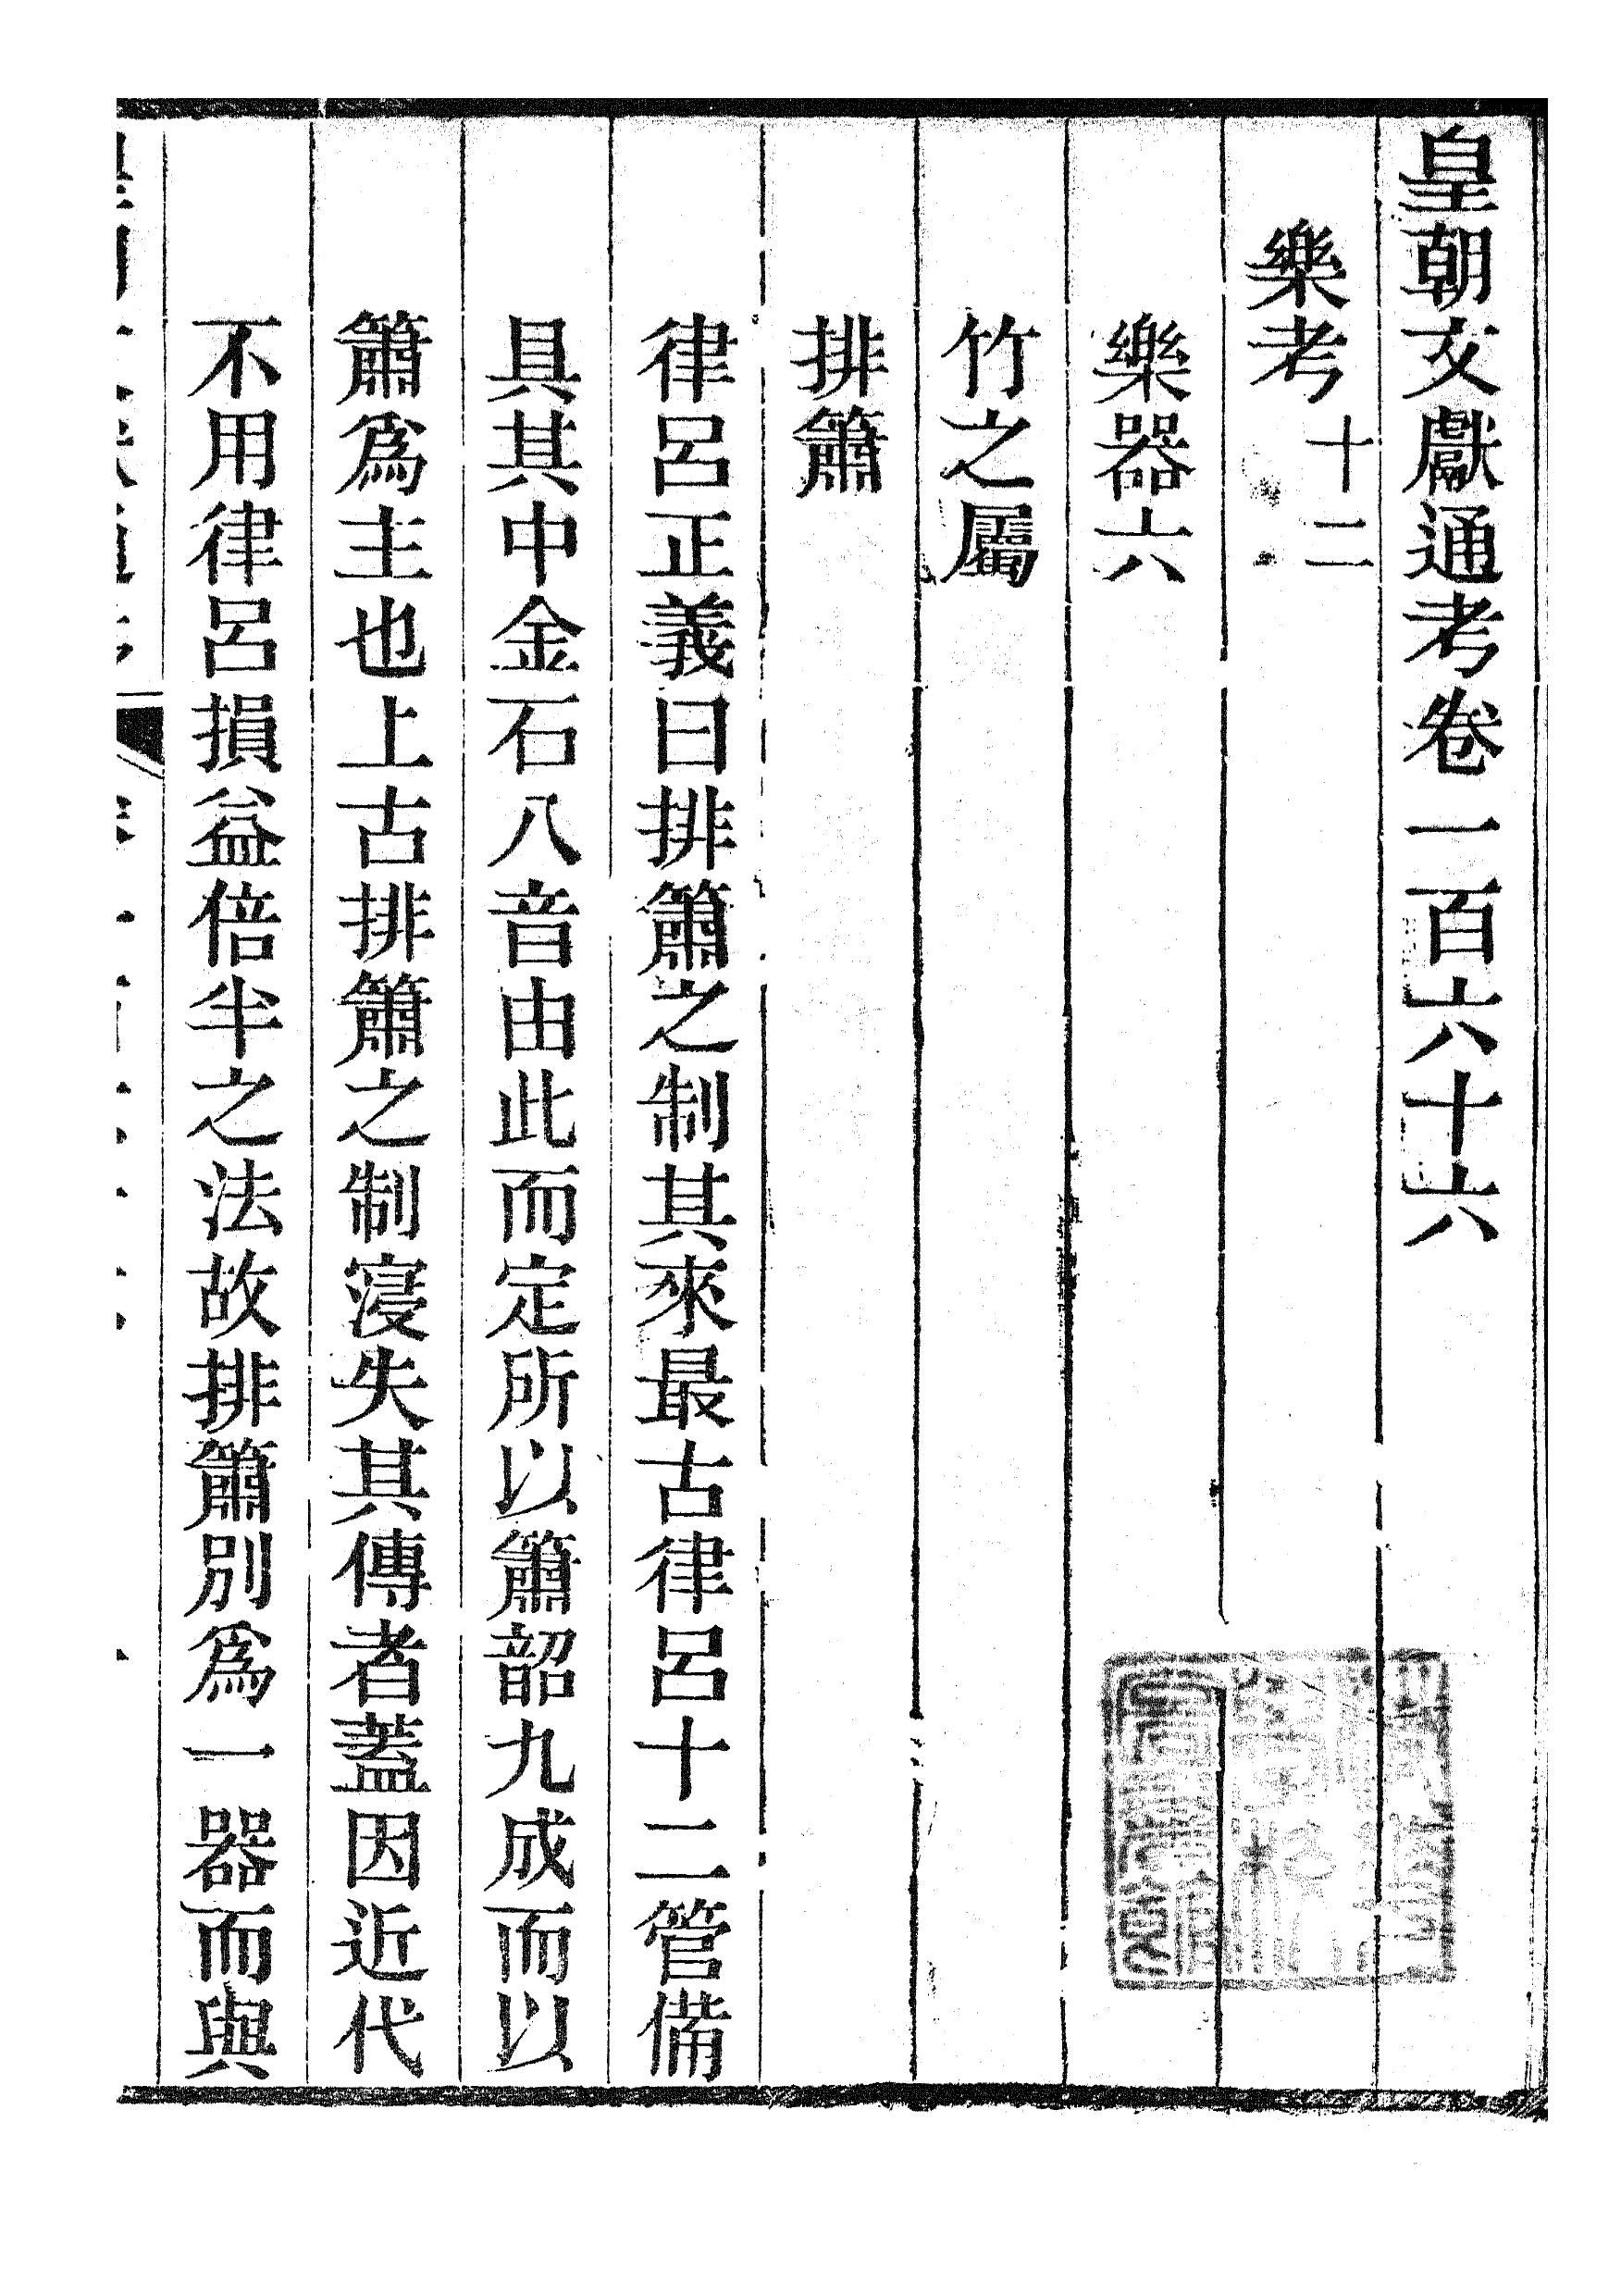 皇朝文獻通考卷一百六十六
樂考十二
樂器六
竹之屬
排簫
律呂正義曰排簫之制其來最古律呂十二管備
具其中金石八音由此而定所以簫韶九成而以
簫爲主也上古排簫之制寖失其傳者蓋因近代
不用律呂損益倍半之法故排簫別爲一器而與